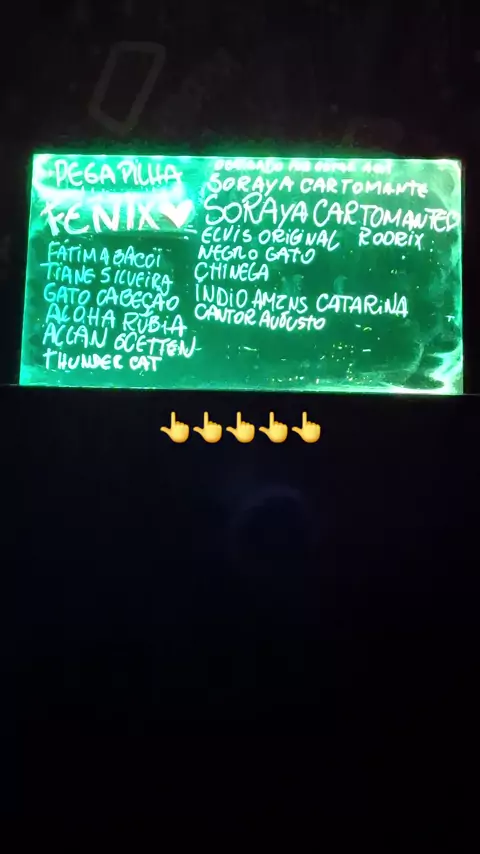 PEGA PILHA
FENIX
FATIMA BACCI
TIANE SILVEIRA
GATO CABEÇÃO
ALOHA RÚBIA
ALLAN GOETTEN
THUNDER CAT
OBRIGADO POR
SORAYA CARTOMANTE
SORAYA CARTOMANTE
ELVIS ORIGINAL RODRIX
NEGRO GATO
CHINEGA
INDIO AMZNS CATARINA
CANTOR AUGUSTO